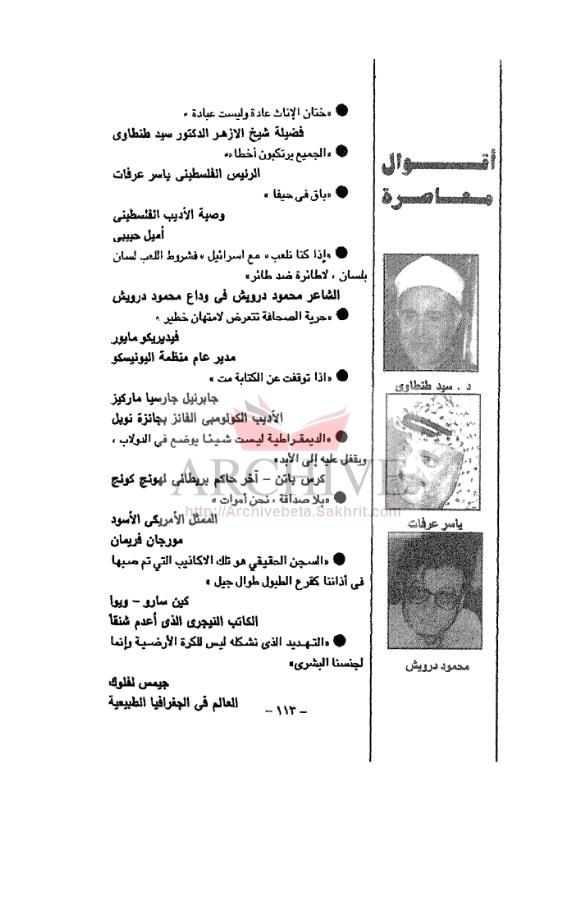 أقـــوال
معـاصـرة
● «ختان الإناث عادة وليست عبادة »
فضيلة شيخ الازهر الدكتور سيد طنطاوى
● «الجميع يرتكبون أخطاء»
الرئيس الفلسطينى ياسر عرفات
● «باق فى حيفا »
وصية الأديب الفلسطينى
أميل حبيبى
● «إذا كنا نلعب» مع اسرائيل « فشروط اللعب لسان
بلسان ، لاطائرة ضد طائر»
الشاعر محمود درويش فى وداع محمود درويش
● «حرية الصحافة تتعرض لامتهان خطير »
فيديريكو مايور
مدير عام منظمة اليونيسكو
● «اذا توقفت عن الكتابة مت »
جابرئيل جارسيا ماركيز
الأديب الكولومبى الفائز بجائزة نوبل
● «الديمقراطية ليست شيئا يوضع في الدولاب ،
ويقفل عليه إلى الأبد»
كرس باتن – آخر حاكم بريطانى لهونج كونج
● «بلا صداقة ، نحن أموات »
الممثل الأمريكى الأسود
مورجان فريمان
● «السجن الحقيقي هو تلك الاكاذيب التي تم صبها
فى أذاننا كقرع الطبول طوال جيل »
كين سارو – ويوا
الكاتب النيجرى الذى أعدم شنقاً
● «التهديد الذى نشكله ليس للكرة الأرضية وإنما
لجنسنا البشرى»
جيمس لفلوك
العالم فى الجغرافيا الطبيعية
د . سيد طنطاوى
ياسر عرفات
محمود درويش
– ١١٣ –
ARCHIVE
http://Archivebeta.Sakhrit.com